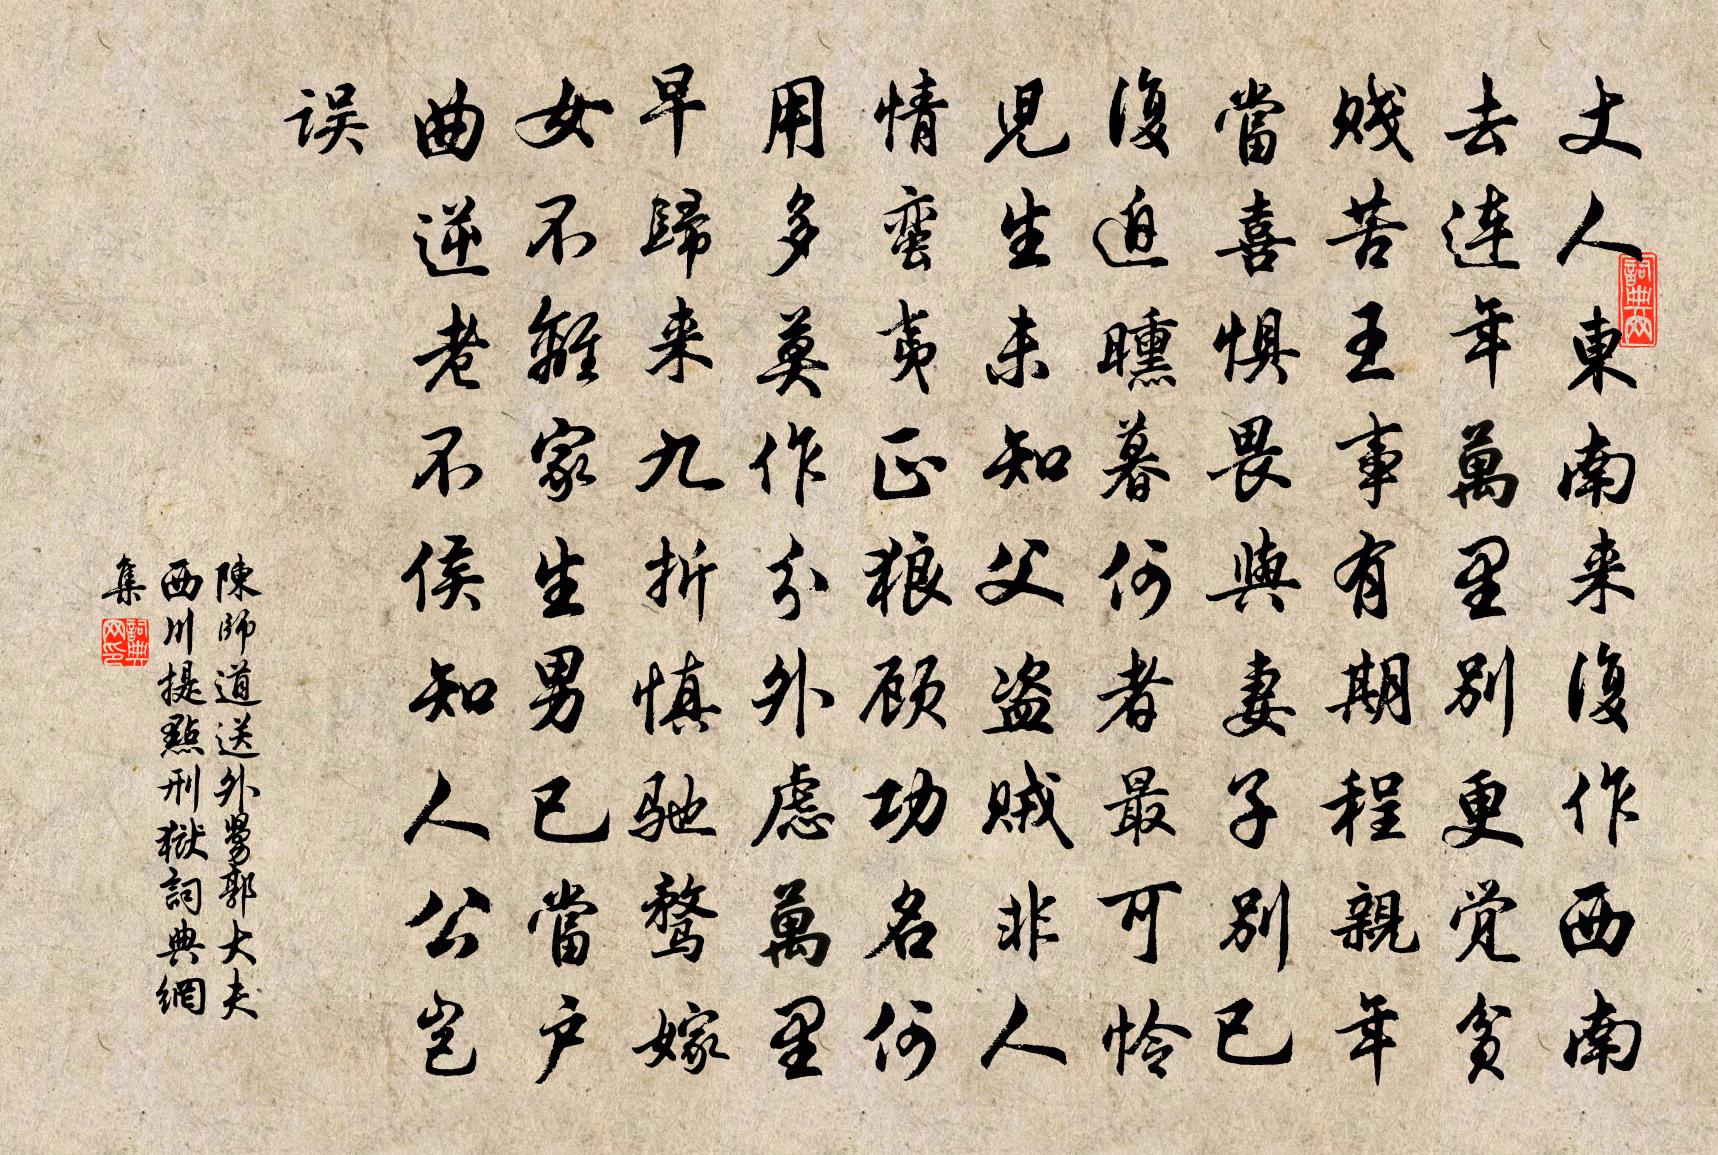 丈人東南来復作西南
去連年萬里别更覚貧
贱苦王事有期程親年
當喜惧畏與妻子别已
復迫曛暮何者最可怜
児生未知父盗贼非人
情蛮夷正狼顾功名何
用多莫作分外虑萬里
早歸来九折慎驰骛嫁
女不離家生男已當户
曲逆老不侯知人公岂
误
陳師道送外舅郭大夫
西川提點刑獄詞典網
集
詞典网
詞典网印